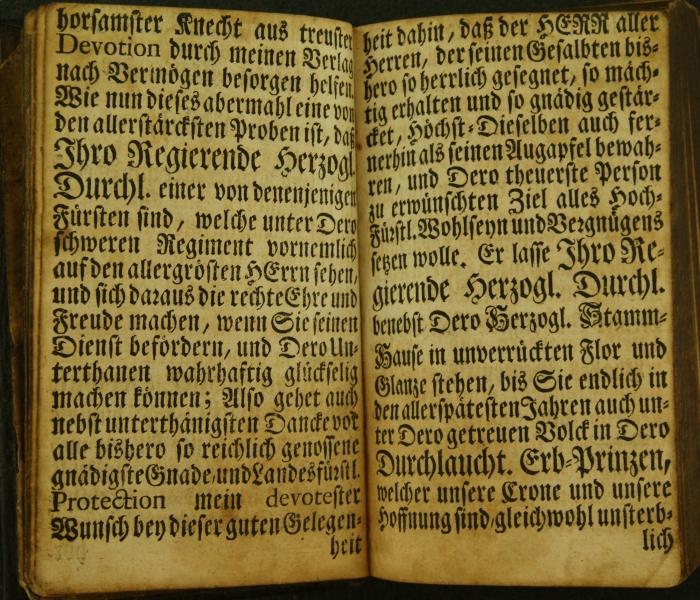 horsamster Knecht aus treuster
Devotion durch meinen Verlag
nach Vermögen besorgen helfen.
Wie nun dieses abermahl eine von
den allerstärcksten Proben ist, daß
Ihro Regierende Herzogl.
Durchl. einer von denenjenigen
Fürsten sind, welche unter Dero
schweren Regiment vornemlich
auf den allergrösten HErrn sehen,
und sich daraus die rechte Ehre und
Freude machen, wenn Sie seinen
Dienst befördern, und Dero Un-
terthanen wahrhaftig glückselig
machen können; Also gehet auch
nebst unterthänigsten Dancke vor
alle bishero so reichlich genossene
gnädigste Gnade, und Landesfürstl.
Protection mein devotester
Wunsch bey dieser guten Gelegen-
heit
heit dahin, daß der HERR aller
Herren, der seinen Gesalbten bis-
hero so herrlich gesegnet, so mäch-
tig erhalten und so gnädig gestär-
cket, Höchst-Dieselben auch fer-
nerhin als seinen Augapfel bewah-
ren, und Dero theuerste Person
zu erwünschten Ziel alles Hoch-
Fürstl. Wohlseyn und Vergnügens
setzen wolle. Er lasse Ihro Re-
gierende Herzogl. Durchl.
benebst Dero Herzogl. Stamm-
Hause in unverrückten Flor und
Glanze stehen, bis Sie endlich in
den allerspätesten Jahren auch un-
ter Dero getreuen Volck in Dero
Durchlaucht. Erb-Prinzen,
welcher unsere Crone und unsere
Hoffnung sind, gleichwohl unsterb-
lich